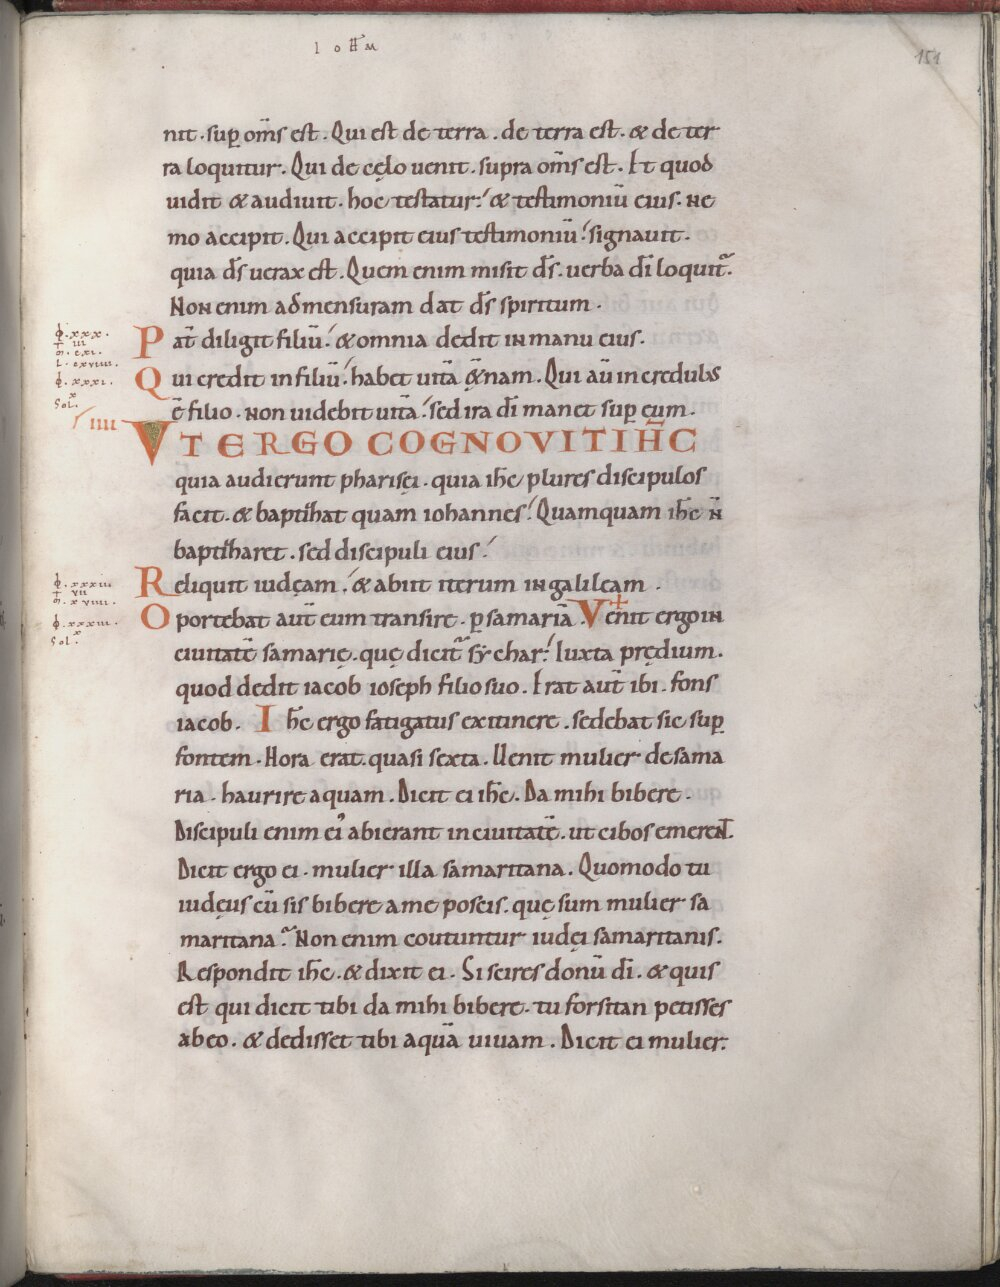 IOHM
151
nit. sup̱ om̄s est. Qui est de terra. de terra est. & de ter
ra loquitur. Qui de cęlo uenit. supra om̄s est. Et quod
uidit & audiuit. hoc testatur: & testimoniū eius. ne
mo accipit. Qui accipit eius testimoniū. signauit.
quia d̄s uerax est. Quem enim misit d̄s. uerba dī loquit᷑.
Non enim ad mensuram dat d̄s spiritum.
Pat̄ diligit filiū. & omnia dedit in manu eius.
Qui credit in filiū. habet uitā &̄nam. Qui aū incredulus
ē filio. non uidebit uitā. sed ira dī manet sup̱ eum.
IIII
VT ERGO COGNOVIT IH̄C
quia audierunt pharisęi. quia ih̄c plures discipulos
facit. & baptīzat quam iohannes. Quamquam ih̄c n̄
baptīzaret. sed discipuli eius.
Reliquit iudęam. & abiit iterum in galileam.
Oportebat aut̄ eum transire. p̱ samariā. Venit ergo in
ciuitatē samarię. quę dicit᷑ sychar. Iuxta prędium.
quod dedit iacob ioseph filio suo. Erat aut̄ ibi. fons
iacob. Ih̄c ergo fatigatus ex itinere. sedebat sic sup̱
fontem. Hora erat. quasi sexta. Uenit mulier de sama
ria. haurire aquam. Dicit ei ih̄c. Da mihi bibere.
Discipuli enim ei᾿ abierant in ciuitatē. ut cibos emerent.
Dicit ergo ei. mulier illa samaritana. Quomodo tu
iudęus cū sis bibere a me poscis. quę sum mulier sa
maritana. Non enim coutuntur iudęi samaritanis.
Respondit ih̄c. & dixit ei. Si scires donū dī. & quis
est qui dicit tibi da mihi bibere. tu forsitan petisses
ab eo. & dedisset tibi aquā uiuam. Dicit ei mulier.